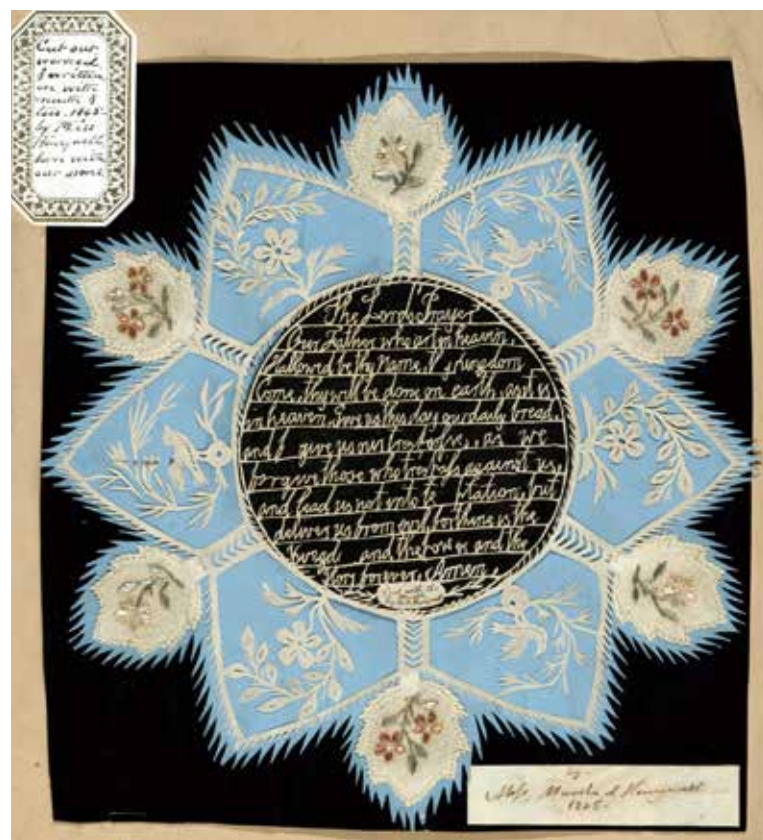 Cut out
worked
& written
on with
mouth &
toes. 1845
by Miss
Honeywell
born with
out arms.
The Lords Prayer
Our Father who art in heaven,
Hallowed be thy Name, kingdom
Come, thy will be done on earth, as it is
in heaven, Give us this day our daily bread,
and give us our, as we
forgive those who trespass against us,
and lead us not into te tation, but
deliver us from evil, for thine is the
and the Power and the
Glory forever, Amen,
by
Miss, Martha A Honeywell
1845